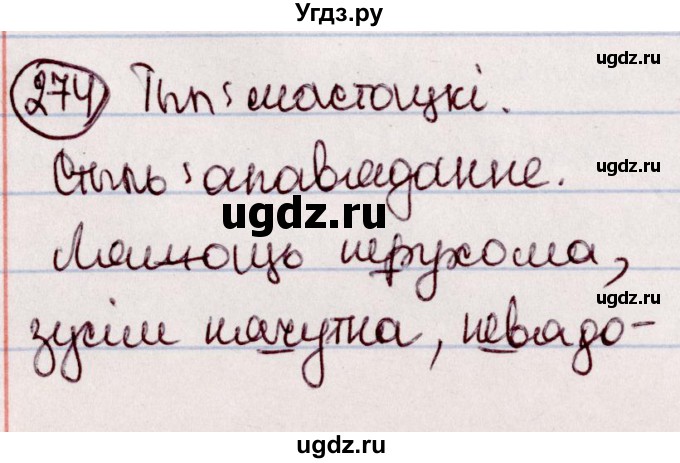 Угдз.ру
ugdz.ru
274 Тып: мастацкі.
ugdz.ru
Стыль: апавяданне.
ugdz.ru
ugdz.ru
нерухома,
ugdz.ru
зусім нячутна, невядо-
ugdz.ru
ugdz.ru